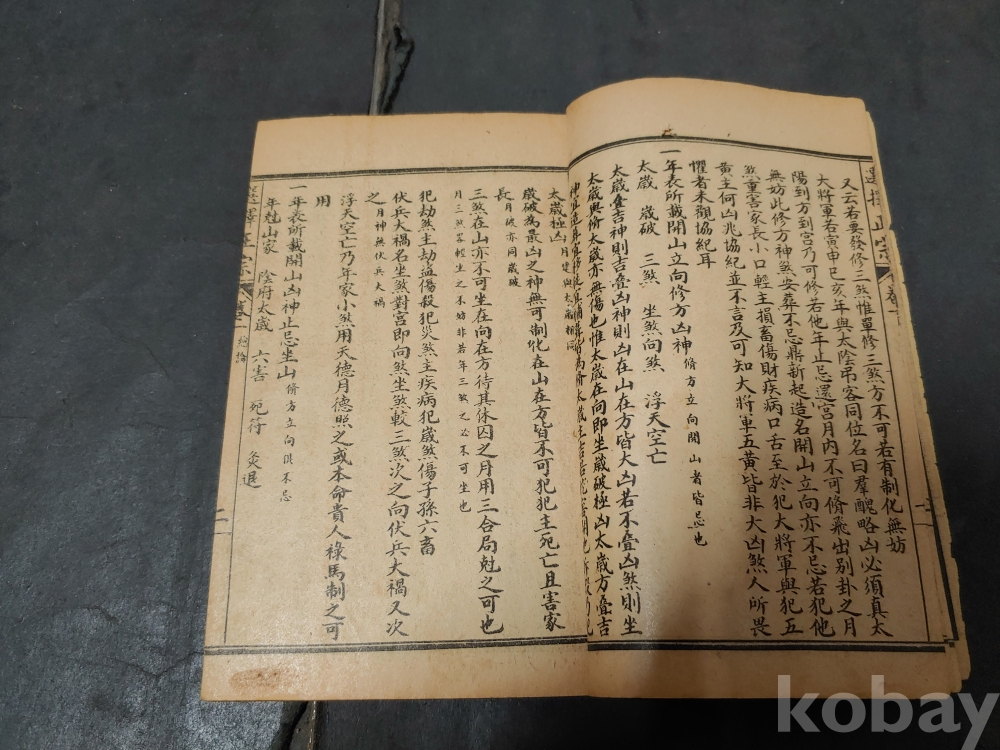 又云若要發修三煞惟單修三煞方不可若有制化無妨
大將軍若寅申巳亥年與太陰弔客同位名曰羣醜略凶必須真太
陽到方到宮乃可修若他年止忌還宮月內不可脩飛出別卦之月
無妨此修方神煞安葬不忌鼎新起造名開山立向亦不忌若犯他
煞重害家長小口輕主損畜傷財疾病口舌至於犯大將軍與犯五
黃主何凶兆協紀並不言及可知大將軍五黃皆非大凶煞人所畏
懼者未觀協紀耳
一年表所載開山立向修方凶神脩方立向開山者皆忌也
太歲 歲破 三煞 坐煞向煞 浮天空亡
太歲疊吉神則吉疊凶神則凶在山在方皆大凶若不疊凶煞則坐
太歲與脩太歲亦無傷也惟太歲在向即坐歲破極凶太歲方疊吉
太歲極凶月建與太歲相同
歲破為最凶之神無可制化在山在方皆不可犯犯主死亡且害家
長月破亦同歲破
三煞在山亦不可坐在向在方待其休囚之月用三合局尅之可也
月三煞畧輕坐之不妨非若年三煞之必不可坐也
犯劫煞主劫盜傷殺犯災煞主疾病犯歲煞傷子孫六畜
伏兵大禍名坐煞對宮即向煞坐煞較三煞次之向伏兵大禍又次
之月神無伏兵大禍
浮天空亡乃年家小煞用天德月德照之或本命貴人祿馬制之可
用
一年表所載開山凶神止忌坐山脩方立向俱不忌
年尅山家 陰府太歲 六害 死符 灸退
選擇正宗
卷
總論
二
kobay